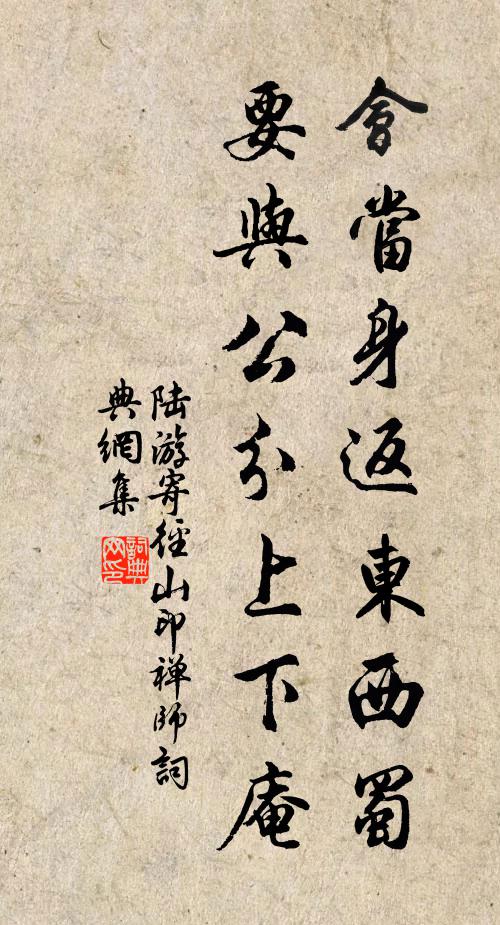 會當身返東西蜀
要與公分上下庵
陆游寄徑山印禅師詞
典網集
詞典
网印